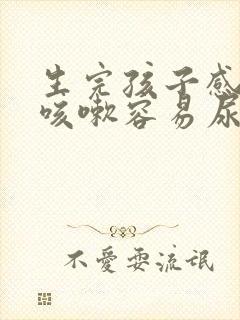 生完孩子感
咳嗽容易尿
不愛耍流氓